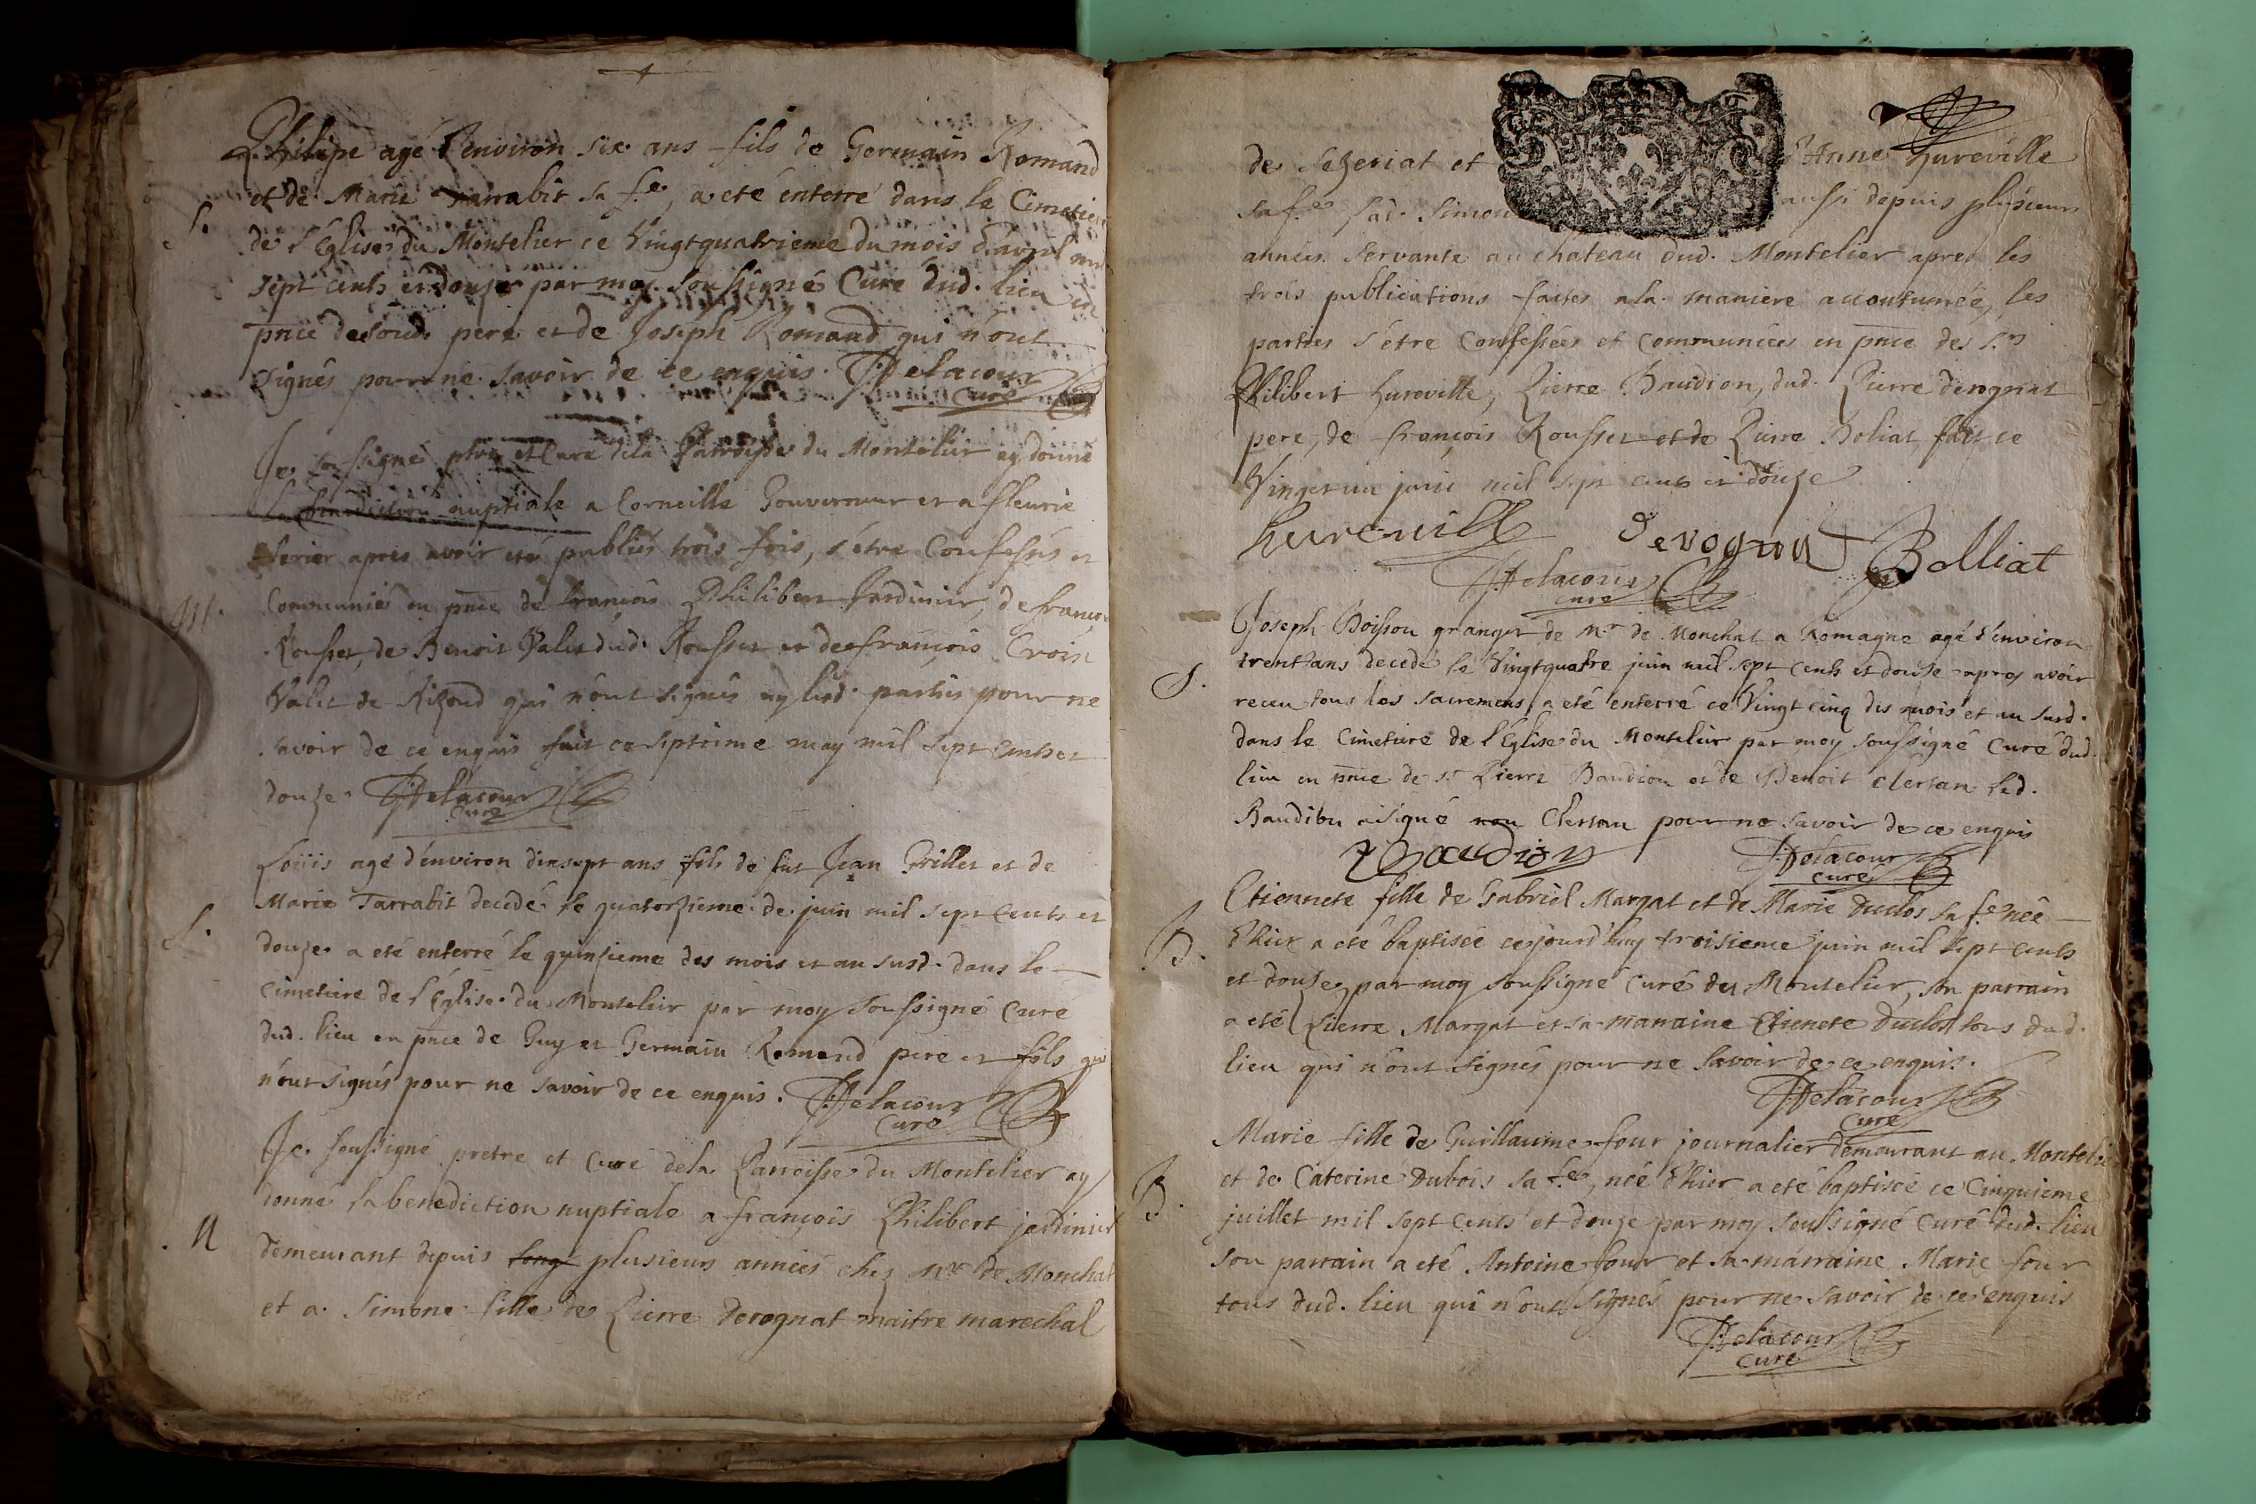 Philipe agé d'environ six ans fils de Germain Romand
et de Marie Tarrabit sa f.e, a eté enterré dans le Cimetiere
S.
de l'Eglise du Montelier ce Vingtquatrieme du mois d'avril mil
sept cents et douze par moy soussigné Curé dud. lieu en
pnce de sond. pere et de Joseph Romand qui n'ont
signés pour ne savoir de ce enquis. Delacour
curé
Je soussigné ptre et Curé de la Parroisse du Montelier ay donné
la benediction nuptiale a Corneille Gouverneur et a fleurie
apres avoir eté publiés trois fois, s'étre Confessés et
M.
Communiés en pnce de françois Philibert Jardinier, de françois
Rousset, de Benoit Valet dud. Rousset et de françois Croix
Valet de qui n'ont signés ny lesd. partis pour ne
savoir de ce enquis fait ce septieme may mil sept cents et
douze. Delacour
Curé
Loüis agé d'environ dixsept ans fils de fut Jean Grillet et de
Marie Tarrabit decedé le quatorzieme de juin mil sept cents et
S.
douze a eté enterré le quinzieme des mois et an susd. dans le
cimetiere de l'Eglise du Montelier par moy soussigné Curé
dud. lieu en pnce de Guy et Germain Romand pere et fils qui
n'ont signés pour ne savoir de ce enquis. Delacour
Curé
Je soussigné pretre et Curé de la Parroisse du Montelier ay
donné la benediction nuptiale a françois Philibert jardinier
M
demeurant depuis long plusieurs années chez Mr. de Monchat
et a Simone fille de Pierre Derognat maitre marechal
de Sezeriat et d'Anne hureville
sa f.e lad. Simone aussi depuis plusieurs
années Servante au chateau dud. Montelier apres les
trois publications faites a la maniere accoutumée, les
parties s'étre Confessées et Communiées en pnce des s.rs
Philibert hureville, Pierre Baudion, dud. Pierre derognat
pere, de françois Rousset et de Pierre Boliat, fait ce
Vingtetun juin mil sept cents et douze
hureuille Derognat Bolliat
Delacour
curé
Joseph Boisson granger de Mr. de Monchat a Romagne agé d'environ
trent'ans decedé le Vingtquatre juin mil sept cents et douse apres avoir
S.
receu tous les sacremens, a eté enterré ce Vingt cinq des mois et an susd.
dans le Cimetiere de l'Eglise du Montelier par moy soussigné Curé dud.
lieu en pnce de s.r Pierre Baudion et de Benoit Clersan led.
Baudion a signé non Clersan pour ne savoir de ce enquis
Baudion Delacour
curé
Etiennete fille de Gabriel Margat et de Marie Duclos sa f.e née
B.
d'hier a eté baptisée cejourd'huy troisieme juin mil sept cents
et douze, par moy soussigné curé du Montelier, son parrain
a eté Pierre Margat et sa marraine Etienete Duclos tous dud.
lieu qui n'ont signés pour ne savoir de ce enquis.
Delacour
Curé
Marie fille de Guillaume four journalier demeurant au Montelier
et de Caterine Dubois sa f.e, née d'hier a eté baptisée ce Cinquieme
B.
juillet mil sept cents et douze par moy soussigné curé dud. lieu
son parrain a eté Antoine four et sa marraine Marie four
tous dud. lieu qui n'ont signés pour ne savoir de ce enquis
Delacour
Curé